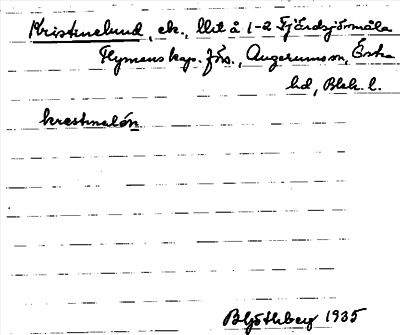 Kristinelund, ek., lht å 1-2 Fjärdsjömåla
Flymens kap. förs., Augerums sn, Östra
hd, Blek. l.
krestineló̲n̲
B Ljöthberg 1935